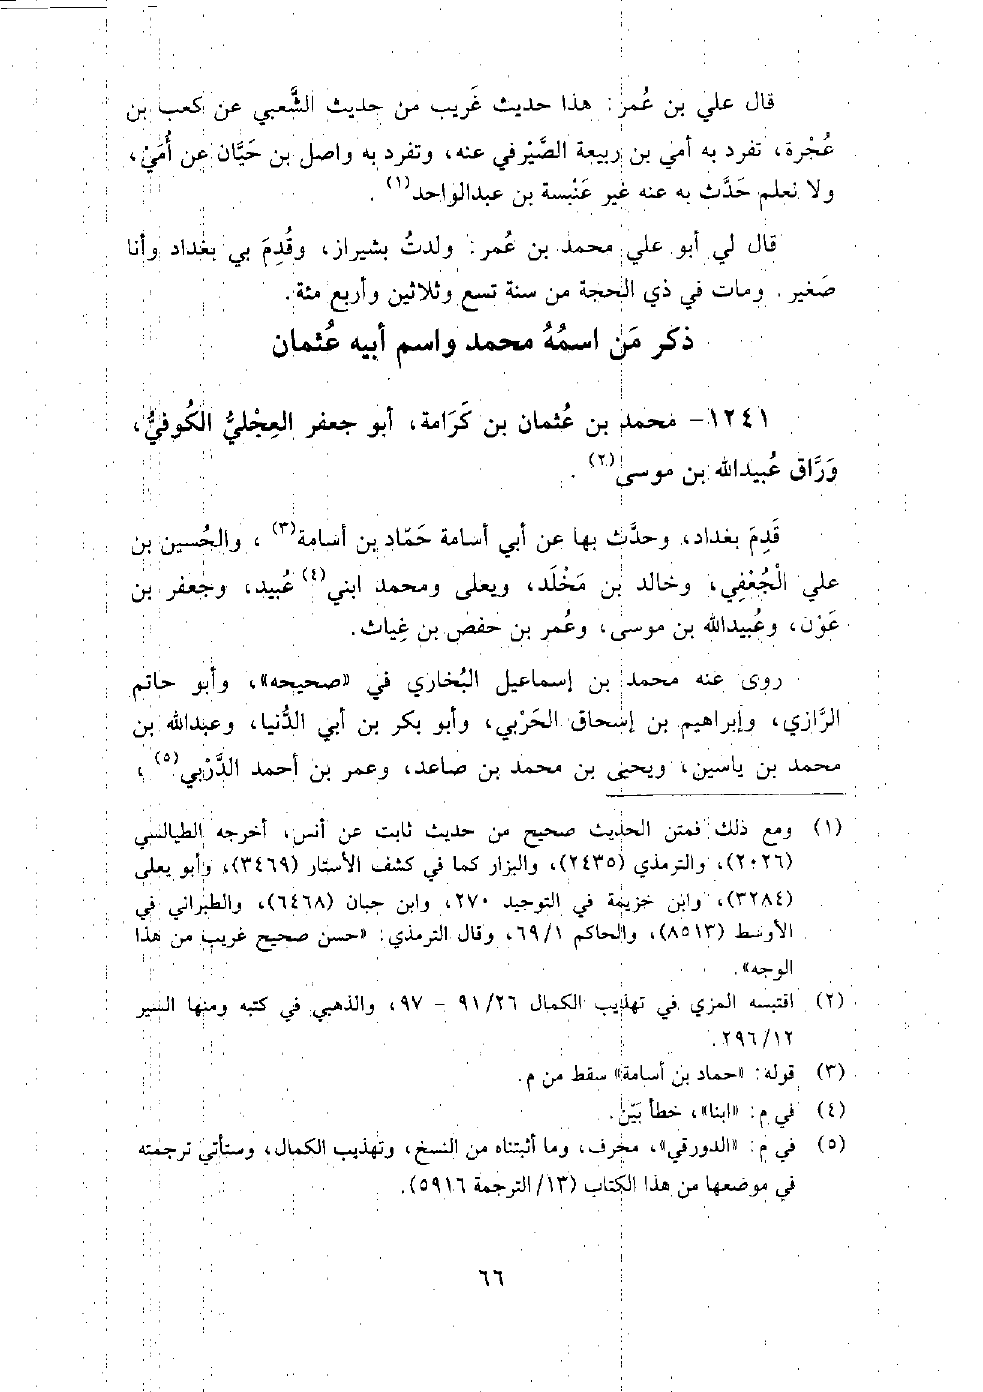 قال علي بن عُمر: هذا حديث غَريب من حديث الشَّعبي عن كعب بن
عُجْرة، تفرد به أمي بن ربيعة الصَّيْرفي عنه، وتفرد به واصل بن حَيَّان عن أُمَيْ،
ولا نعلم حَدَّث به عنه غير عَنْبسة بن عبدالواحد(١) .
قال لي أبو علي محمد بن عُمر: ولدتُ بشيراز، وقُدِمَ بي بغداد وأنا
صَغير. ومات في ذي الحجة من سنة تسع وثلاثين وأربع مئة.
ذكر مَن اسمُهُ محمد واسم أبيه عُثمان
١٢٤١- محمد بن عُثمان بن كَرَامة، أبو جعفر العِجْليُّ الكُوفيُّ،
وَرَّاق عُبيدالله بن موسى(٢) .
قَدِمَ بغداد، وحدَّث بها عن أبي أسامة حَمّاد بن أسامة(٣) ، والحُسين بن
علي الْجُعْفِي، وخالد بن مَخْلَد، ويعلى ومحمد ابني(٤) عُبيد، وجعفر بن
عَوْن، وعُبيدالله بن موسى، وعُمر بن حفص بن غِياث.
روى عنه محمد بن إسماعيل البُخاري في «صحيحه»، وأبو حاتم
الرَّازي، وإبراهيم بن إسحاق الحَرْبي، وأبو بكر بن أبي الدُّنيا، وعبدالله بن
محمد بن ياسين، ويحيى بن محمد بن صاعد، وعمر بن أحمد الدَّرْبي(٥) ،
(١) ومع ذلك فمتن الحديث صحيح من حديث ثابت عن أنس، أخرجه الطيالسي
(٢٠٢٦)، والترمذي (٢٤٣٥)، والبزار كما في كشف الأستار (٣٤٦٩)، وأبو يعلى
(٣٢٨٤)، وابن خزيمة في التوحيد ٢٧٠، وابن حبان (٦٤٦٨)، والطبراني في
الأوسط (٨٥١٣)، والحاكم ١/ ٦٩، وقال الترمذي: «حسن صحيح غريب من هذا
الوجه».
(٢) اقتبسه المزي في تهذيب الكمال ٢٦/ ٩١ – ٩٧، والذهبي في كتبه ومنها السير
١٢/ ٢٩٦.
(٣) قوله: «حماد بن أسامة» سقط من م.
(٤) في م: «ابنا»، خطأ بَيّن.
(٥) في م: «الدورقي»، محرف، وما أثبتناه من النسخ، وتهذيب الكمال، وستأتي ترجمته
في موضعها من هذا الكتاب (١٣/ الترجمة ٥٩١٦).
٦٦